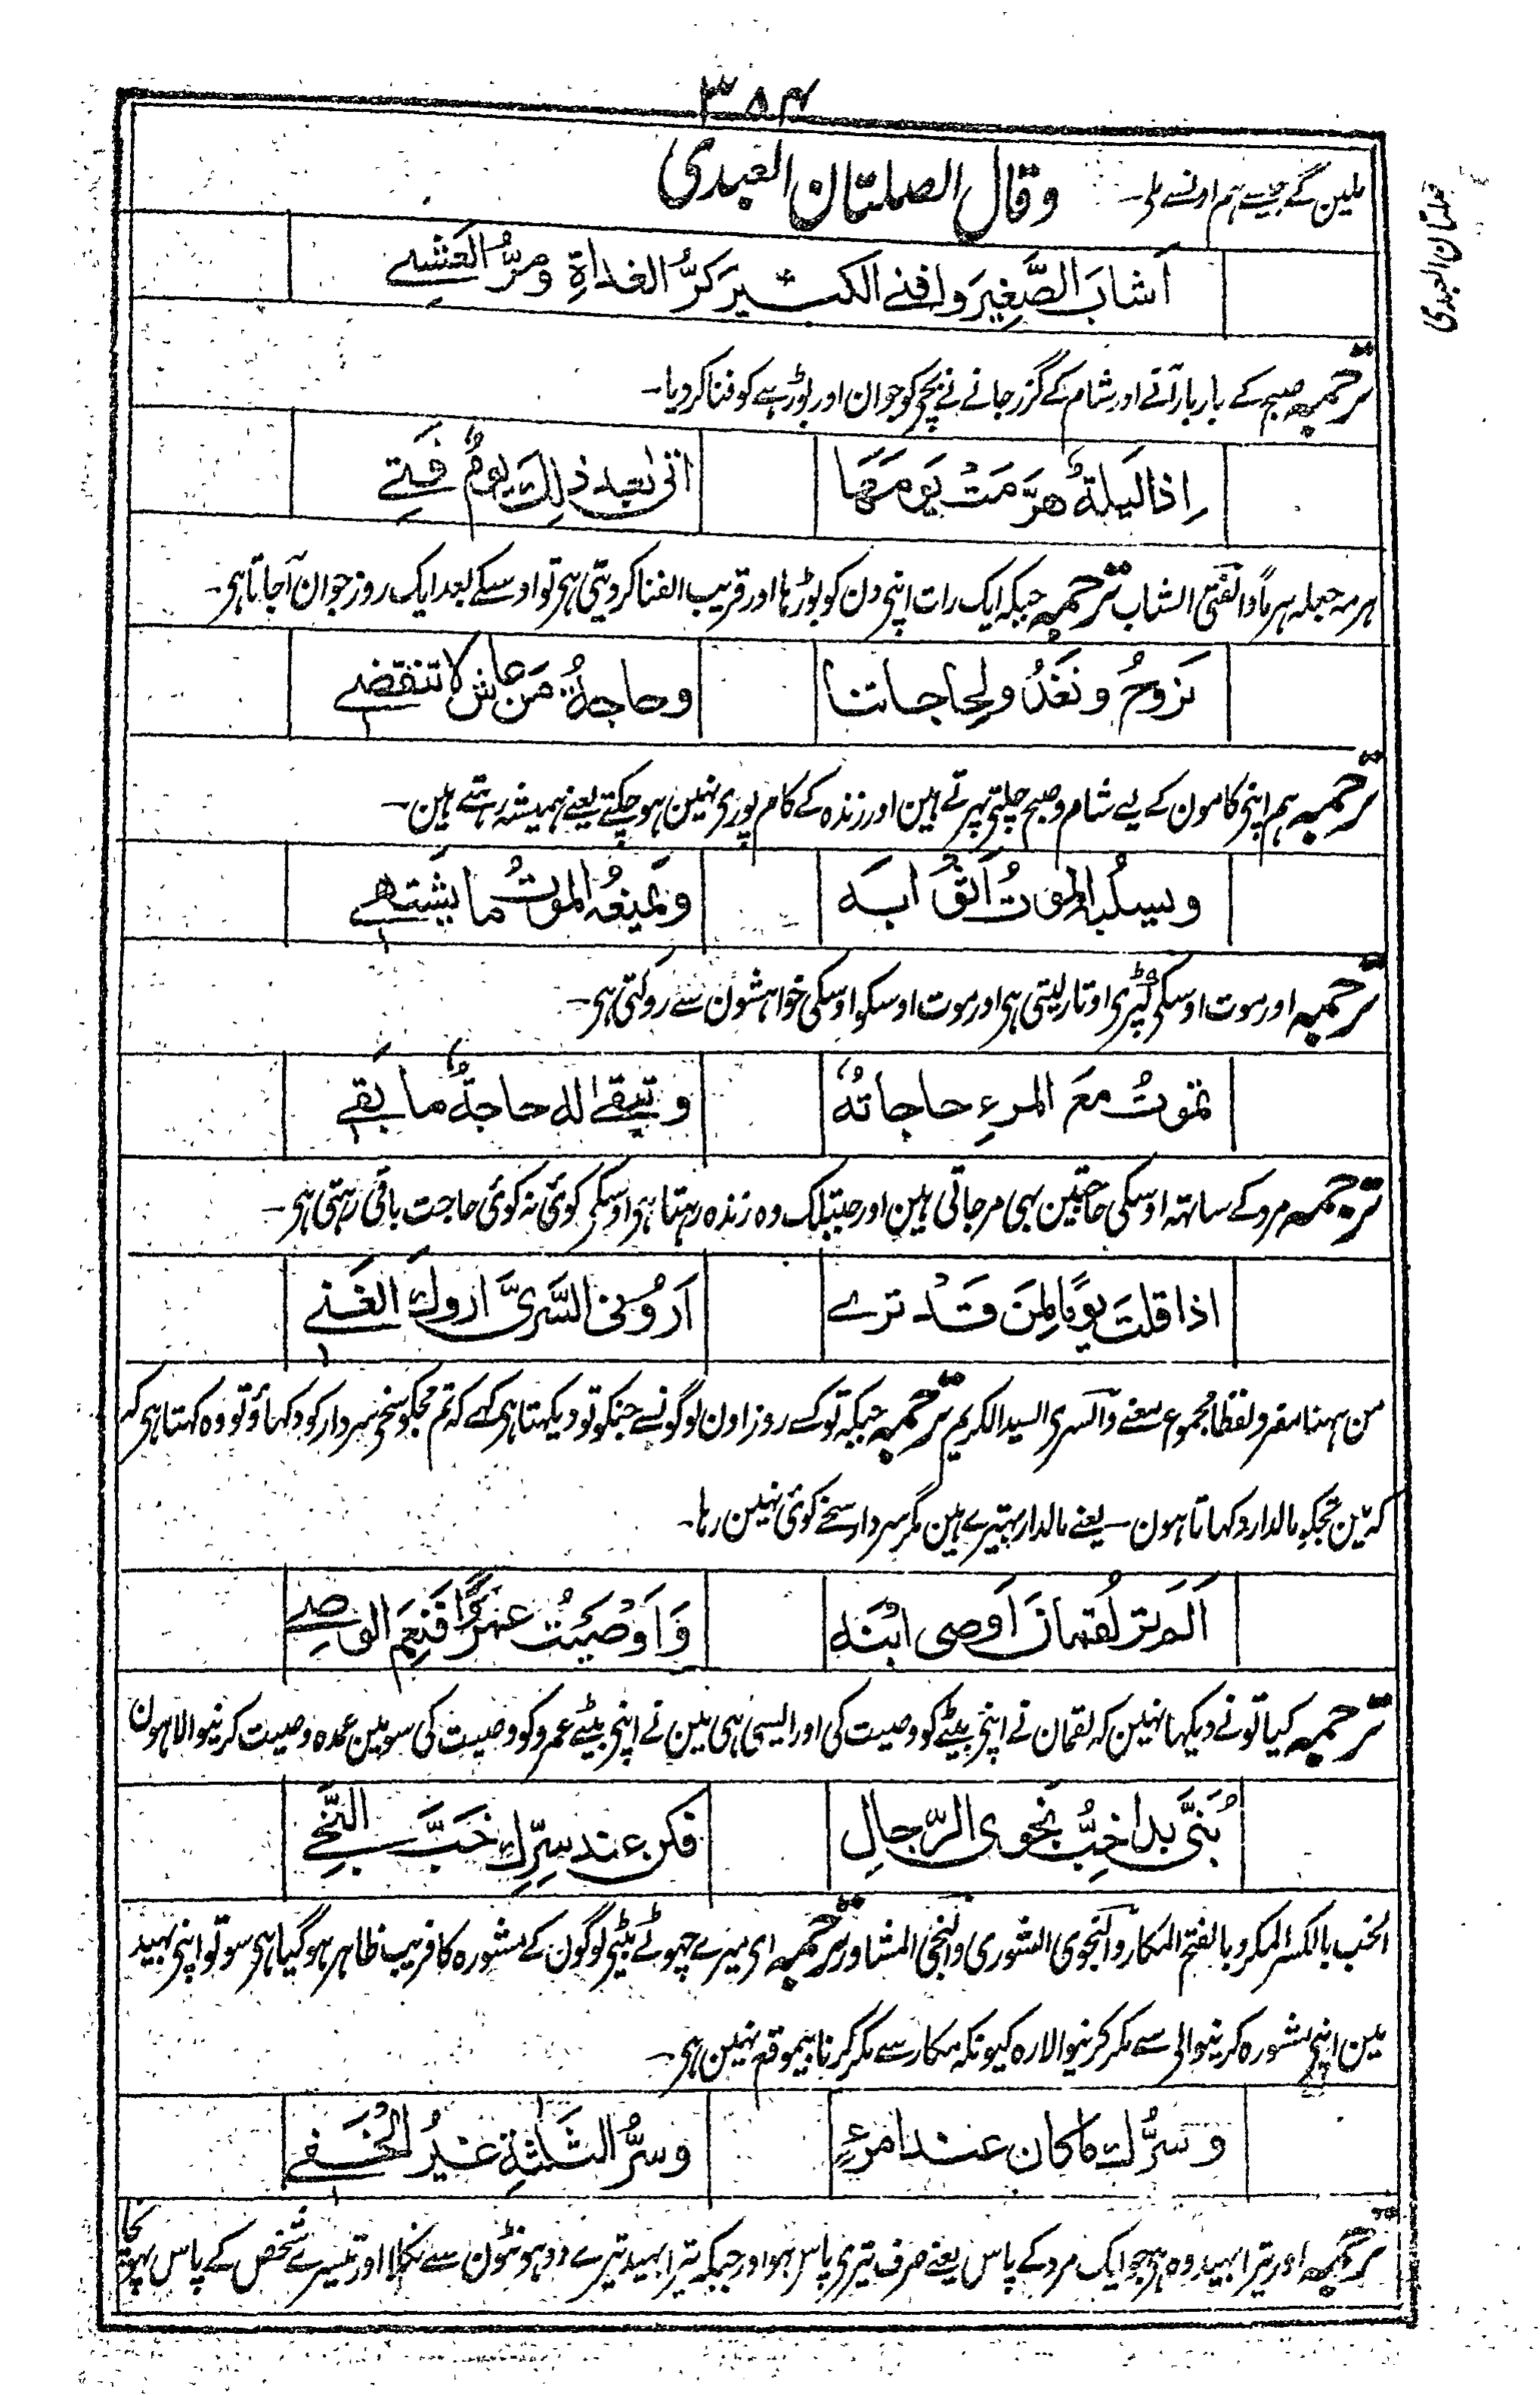 ۳۸۴
ملین گے جیسے ہم اونسے ملے۔ وقال الصلتان العبدی
صلتان العبدی
اَشابَ الصَّغِیرَ وافنے الکبیر کرُّ الغداۃِ ومرُّ العَشے
ترجمہ صبح کے بار بار آنے اور شام کے گزر جانے نے بچی کو جوان اور بوڑہے کو فنا کر دیا۔
اِذا لَیلۃٌ ھرَّمَتْ یَومَھَا اتیٰ بعد ذٰلک یومٌ فَتِے
ہرمہ جعلہ ہرماً والفتی الشاب ترجمہ جبکہ ایک رات اپنی دن کو بوڑہا اور قریب الفنا کر دیتی ہی تو اوسکے بعد ایک روز جوان آجاتا ہی۔
نَروحُ ونَغدُ ولِحاجاتنا وحاجۃُ مَن عاش لا تنقضے
ترجمہ ہم اپنی کامون کے لیے شام وصبح چلتی پہرتے ہین اور زندہ کے کام پوری نہین ہو چکتے یعنے ہمیشہ رہتے ہین۔
وسیلبہ الموتُ اَثوابَہ ویمنعُہ الموتُ ما یشتھے
ترجمہ اور موت اوسکی کپڑی اوتار لیتی ہی اور موت اوسکو اوسکی خواہشون سے روکتی ہی۔
تموتُ مَعَ المرءِ حاجاتُہٗ وتبقےٰ لہ حاجۃٌ ما بقے
ترجمہ مرد کے ساتہہ اوسکی حاجتین بہی مر جاتی ہین اور جبتلک وہ زندہ رہتا ہی اوسکی کوئی نہ کوئی حاجت باقی رہتی ہی۔
اذا قلتَ یومًا لِمَن قَدْ ترے اَرُونی السَّرِیَّ اروک الغَنے
من ہہنا مفرد لفظا مجموع معنے والسری السید الکریم ترجمہ جبکہ تو کسے روز اون لوگونسے جنکو تو دیکہتا ہی کہے کہ تم مجکو سخی سردار کو دکہاؤ تو وہ کہتا ہی کہ
کہ مین تجکو مالدار دکہاتا ہون۔ یعنے مالدار بہتیرے ہین مگر سردار سخے کوئی نہین رہا۔
اَلَم تر لُقمانَ اَوصی ابْنَہ وَاَوْصَیْتُ عَمرًوا فَنِعمَ الوصِے
ترجمہ کیا تو نے دیکہا نہین کہ لقمان نے اپنی بیٹے کو وصیت کی اور ایسی ہی مین نے اپنی بیٹے عمرو کو وصیت کی سو مین عمدہ وصیت کرنیوالا ہون
بُنَیَّ بدا خِبُّ نجوی الرّجالِ فکن عند سِرِّک خَبَّ النَّجِے
الخب بالکسر المکر وبالفتح المکار والنجوی الشوری والنجی المشاور ترجمہ ای میرے چہوٹے بیٹی لوگون کے مشورہ کا فریب ظاہر ہو گیا ہی سو تو اپنی بہید
مین اپنی مشورہ کرنیوالی سے مکر کرنیوالا رہ کیونکہ مکار سے مکر کرنا بیموقع نہین ہی۔
وسرُّک ما کان عند امرءٍ وسرُّ الثَّلٰثۃِ غَیرُ الخَفے
ترجمہ اور تیرا بہید وہ ہی جو ایک مرد کے پاس یعنے صرف تیری پاس ہو اور جبکہ تیرا بہید تیرے دو ہونٹون سے نکلا اور تیسرے شخص کے پاس پہونچا